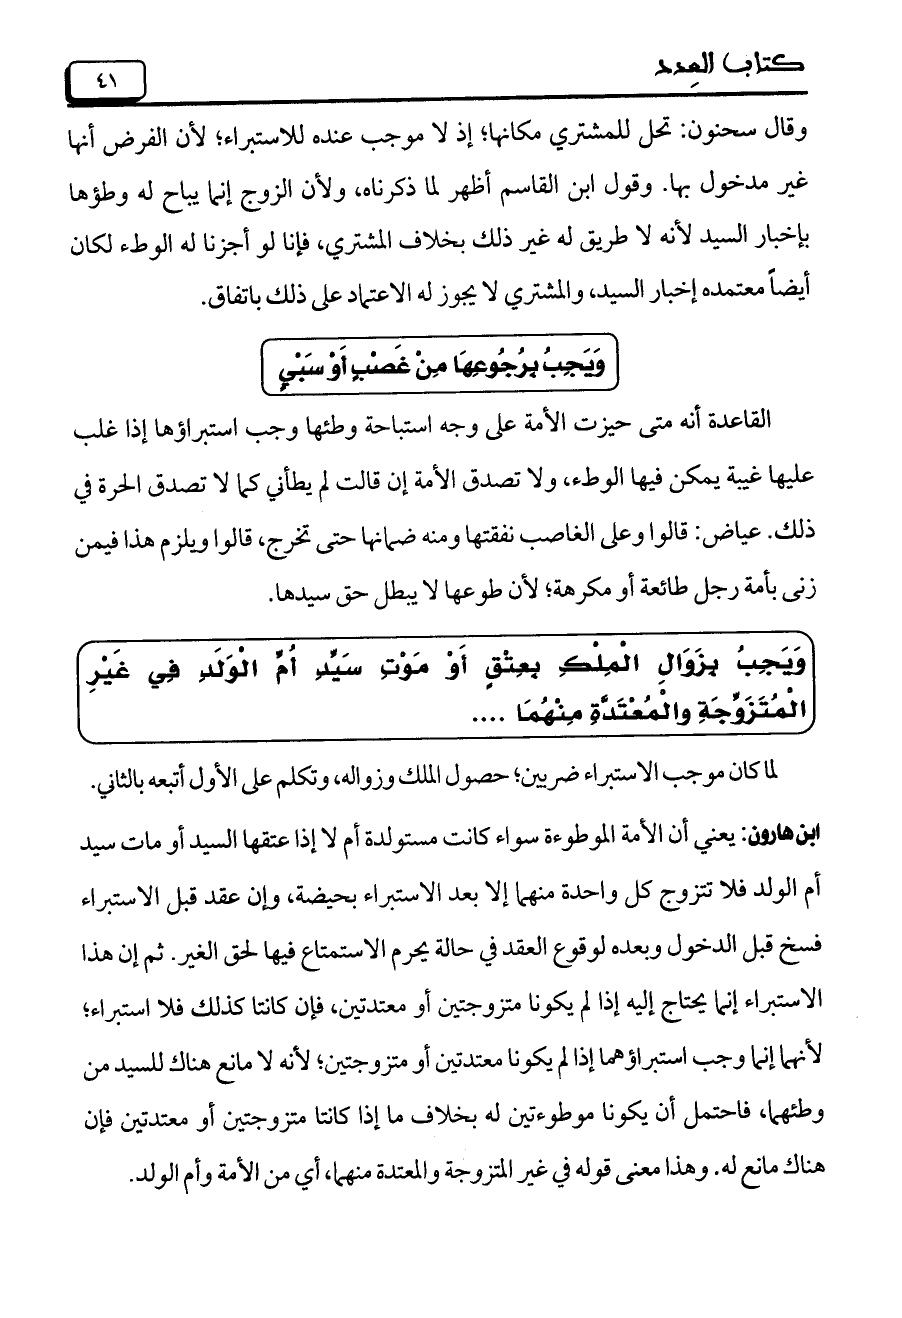 كتاب العِدد
٤١
وقال سحنون: تحل للمشتري مكانها؛ إذ لا موجب عنده للاستبراء؛ لأن الفرض أنها
غير مدخول بها. وقول ابن القاسم أظهر لما ذكرناه، ولأن الزوج إنما يباح له وطؤها
بإخبار السيد لأنه لا طريق له غير ذلك بخلاف المشتري، فإنا لو أجزنا له الوطء لكان
أيضاً معتمده إخبار السيد، والمشتري لا يجوز له الاعتماد على ذلك باتفاق.
وَيَجِبُ بِرُجُوعِهَا مِنْ غَصْبٍ أَوْ سَبْيٍ
القاعدة أنه متى حيزت الأمة على وجه استباحة وطئها وجب استبراؤها إذا غلب
عليها غيبة يمكن فيها الوطء، ولا تصدق الأمة إن قالت لم يطأني كما لا تصدق الحرة في
ذلك. عياض: قالوا وعلى الغاصب نفقتها ومنه ضمانها حتى تخرج، قالوا ويلزم هذا فيمن
زنى بأمة رجل طائعة أو مكرهة؛ لأن طوعها لا يبطل حق سيدها.
وَيَجِبُ بِزَوَالِ الْمِلْكِ بِعِتْقٍ أَوْ مَوْتِ سَيِّدِ أُمِّ الْوَلَدِ فِي غَيْرِ
الْمُتَزَوِّجَةِ والْمُعْتَدَّةِ مِنْهُمَا ....
لما كان موجب الاستبراء ضربين؛ حصول الملك وزواله، وتكلم على الأول أتبعه بالثاني.
ابن هارون: يعني أن الأمة الموطوءة سواء كانت مستولدة أم لا إذا عتقها السيد أو مات سيد
أم الولد فلا تتزوج كل واحدة منهما إلا بعد الاستبراء بحيضة، وإن عقد قبل الاستبراء
فسخ قبل الدخول وبعده لوقوع العقد في حالة يحرم الاستمتاع فيها لحق الغير. ثم إن هذا
الاستبراء إنما يحتاج إليه إذا لم يكونا متزوجتين أو معتدتين، فإن كانتا كذلك فلا استبراء؛
لأنهما إنما وجب استبراؤهما إذا لم يكونا معتدتين أو متزوجتين؛ لأنه لا مانع هناك للسيد من
وطئهما، فاحتمل أن يكونا موطوءتين له بخلاف ما إذا كانتا متزوجتين أو معتدتين فإن
هناك مانع له. وهذا معنى قوله في غير المتزوجة والمعتدة منهما، أي من الأمة وأم الولد.